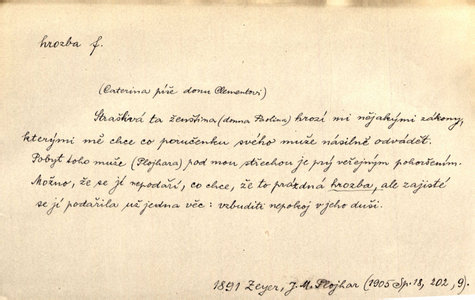 hrozba f.
(Caterina píše donu Clementovi)
Strašlivá ta ženština (donna Paolina) hrozí mi nějakými zákony,
kterými mě chce co poručenku svého muže násilně odvádět.
Pobyt toho muže (Plojhara) pod mou střechou je prý veřejným pohoršením.
Možno, že se jí nepodaří, co chce, že to prázdná hrozba, ale zajisté
se jí podařila už jedna věc: vzbuditi nepokoj v jeho duši.
1891 Zeyer, J. M. Plojhar (1905 Sp. 18, 202, 9).